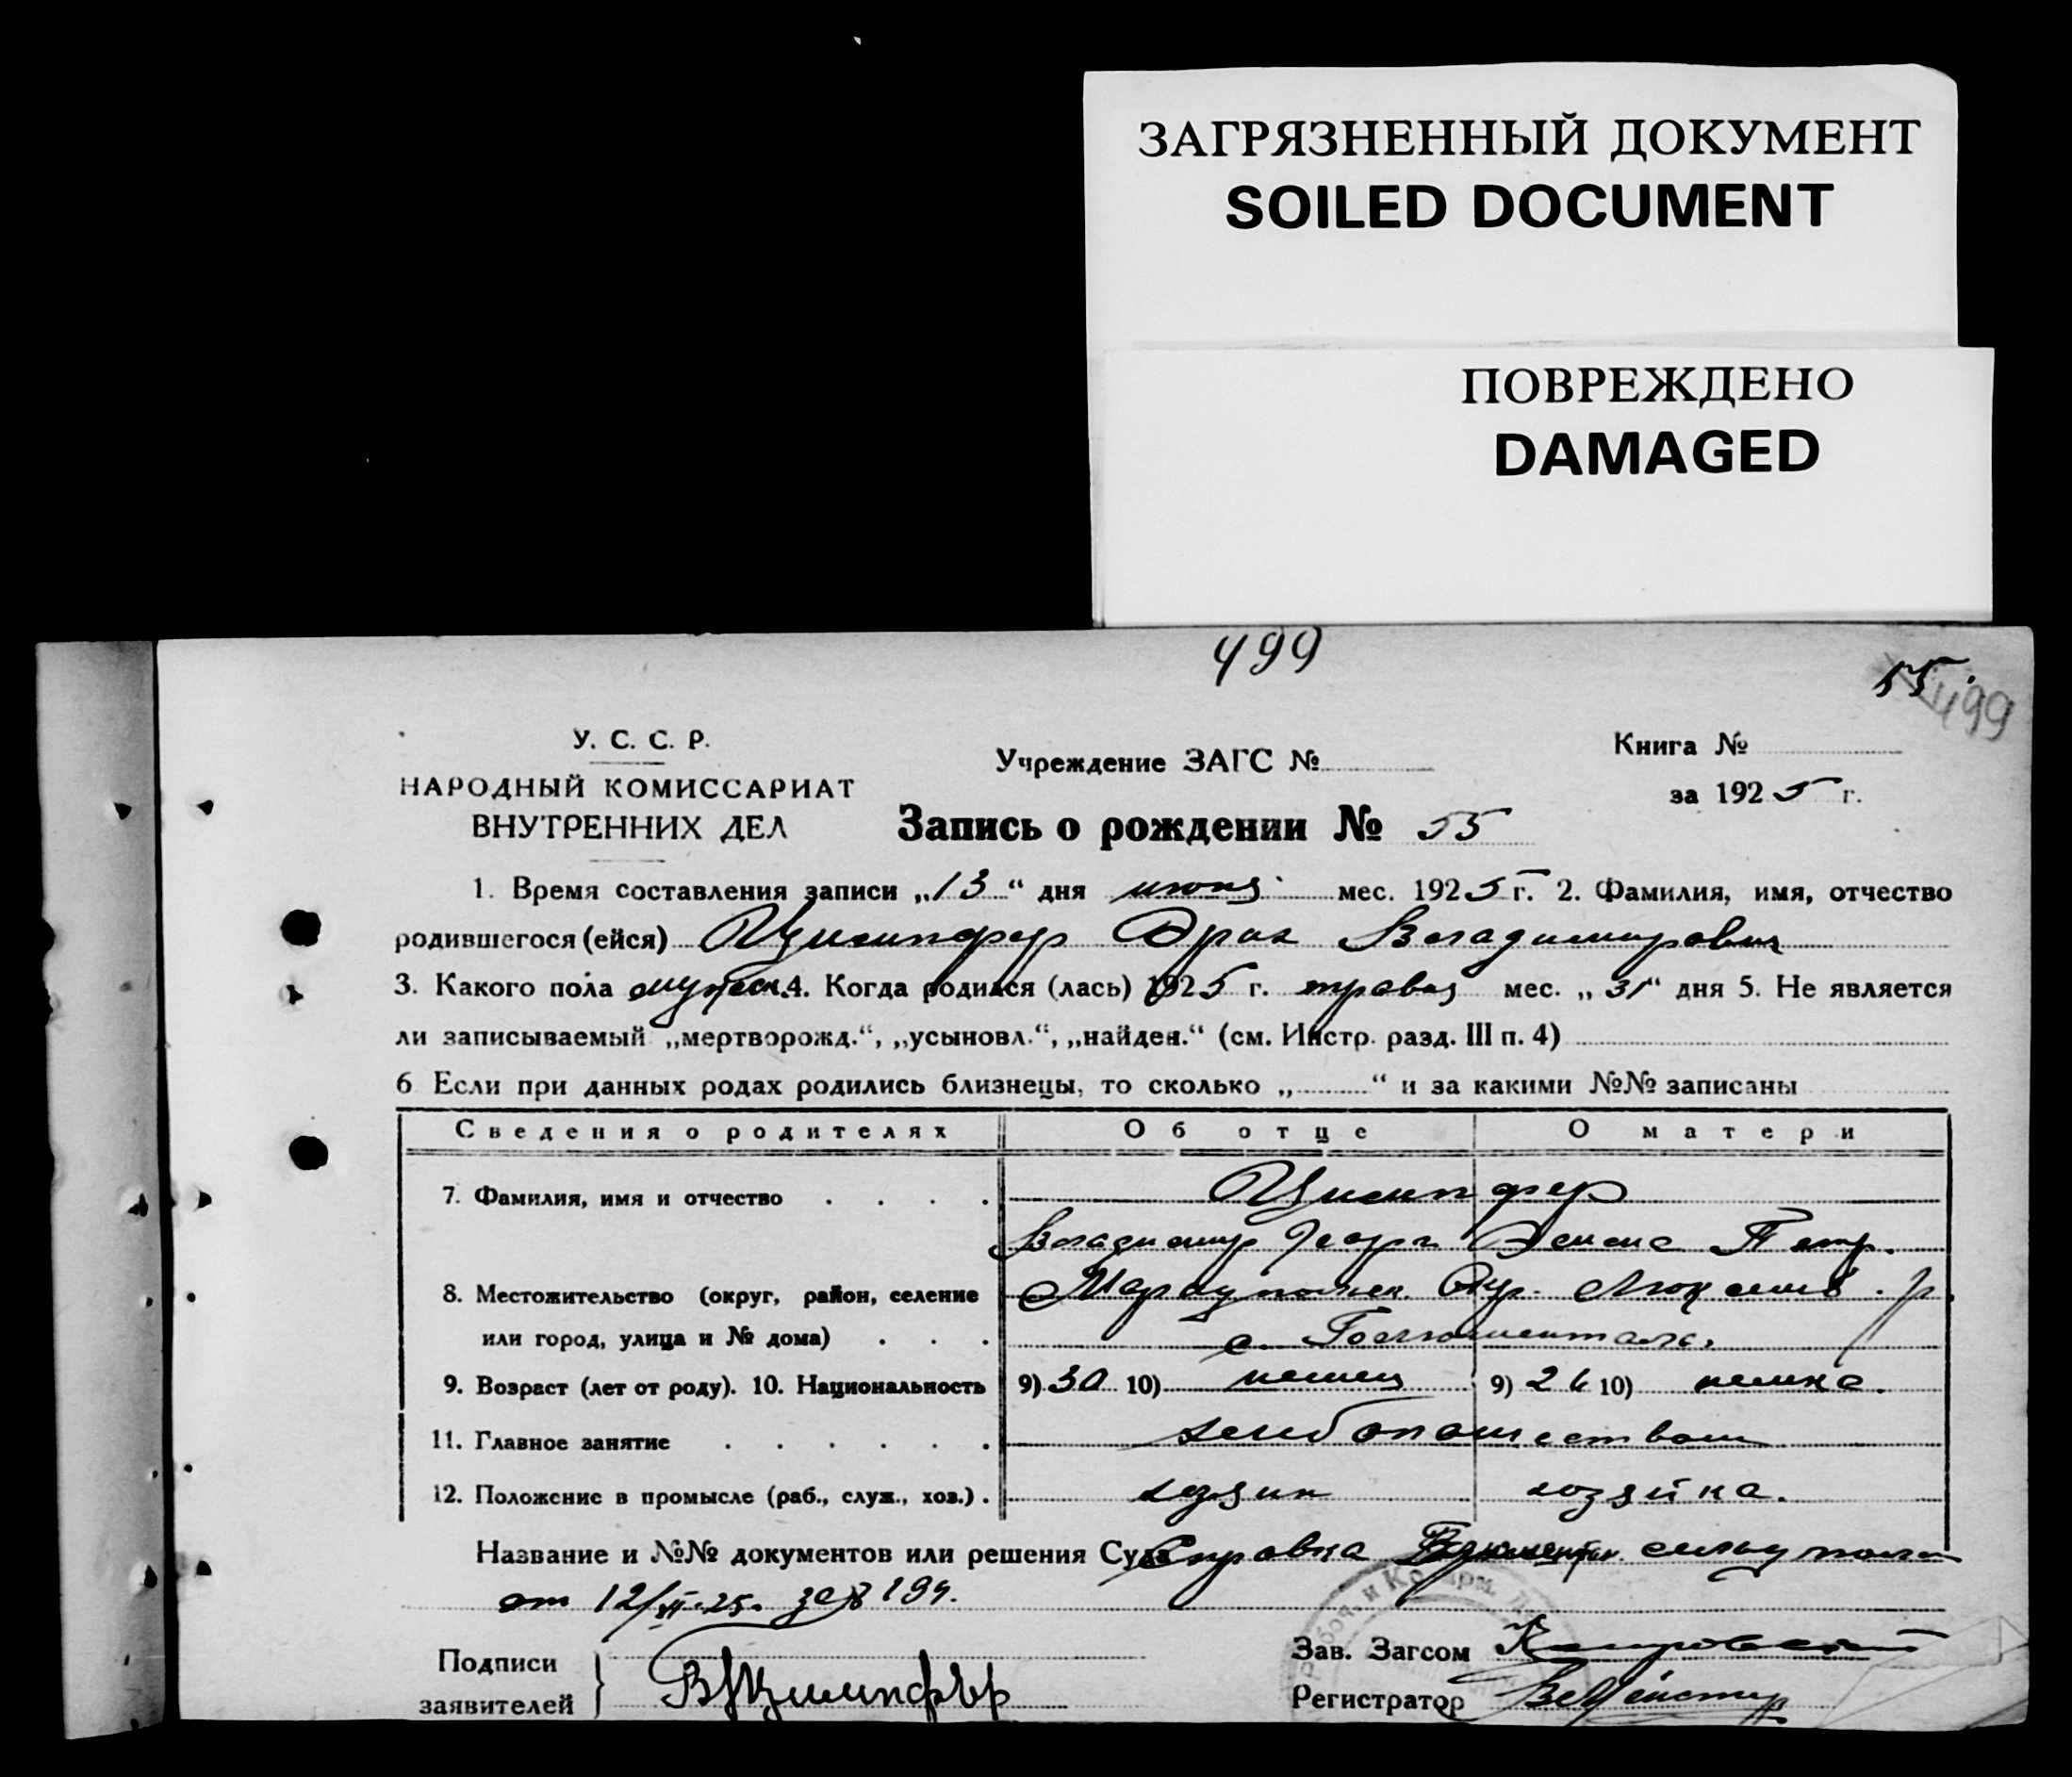 ЗАГРЯЗНЕННЫЙ ДОКУМЕНТ
SOILED DOCUMENT
ПОВРЕЖДЕНО
DAMAGED
499
55.
499
У. С. С. Р.
НАРОДНЫЙ КОМИССАРИАТ
ВНУТРЕННИХ ДЕЛ
Учреждение ЗАГС №
Книга №
за 1925 г.
Запись о рождении № 55
1. Время составления записи „13“ дня июня мес. 1925 г. 2. Фамилия, имя, отчество
родившегося (ейся) Цимпфер Эрик Владимирович
3. Какого пола мужск. 4. Когда родился (лась) 1925 г. травня мес. „31“ дня 5. Не является
ли записываемый „мертворожд.“, „усыновл.“, „найден.“ (см. Инстр. разд. III п. 4)
6 Если при данных родах родились близнецы, то сколько „ “ и за какими №№ записаны
Сведения о родителях Об отце О матери
7. Фамилия, имя и отчество Цимпфер
Владимир Георг Петр.
8. Местожительство (округ, район, селение Мариупольск. Окр. Люксемб. р.
или город, улица и № дома) с.
9. Возраст (лет от роду). 10. Национальность 9) 30 10) немец 9) 26 10) немка.
11. Главное занятие хлебопашеством
12. Положение в промысле (раб., служ., хоз.) хозяин хозяйка.
Название и №№ документов или решения Суда Справка
от 12/VI-25. за № 199.
Подписи
заявителей В Цимпфер
Зав. Загсом
Регистратор